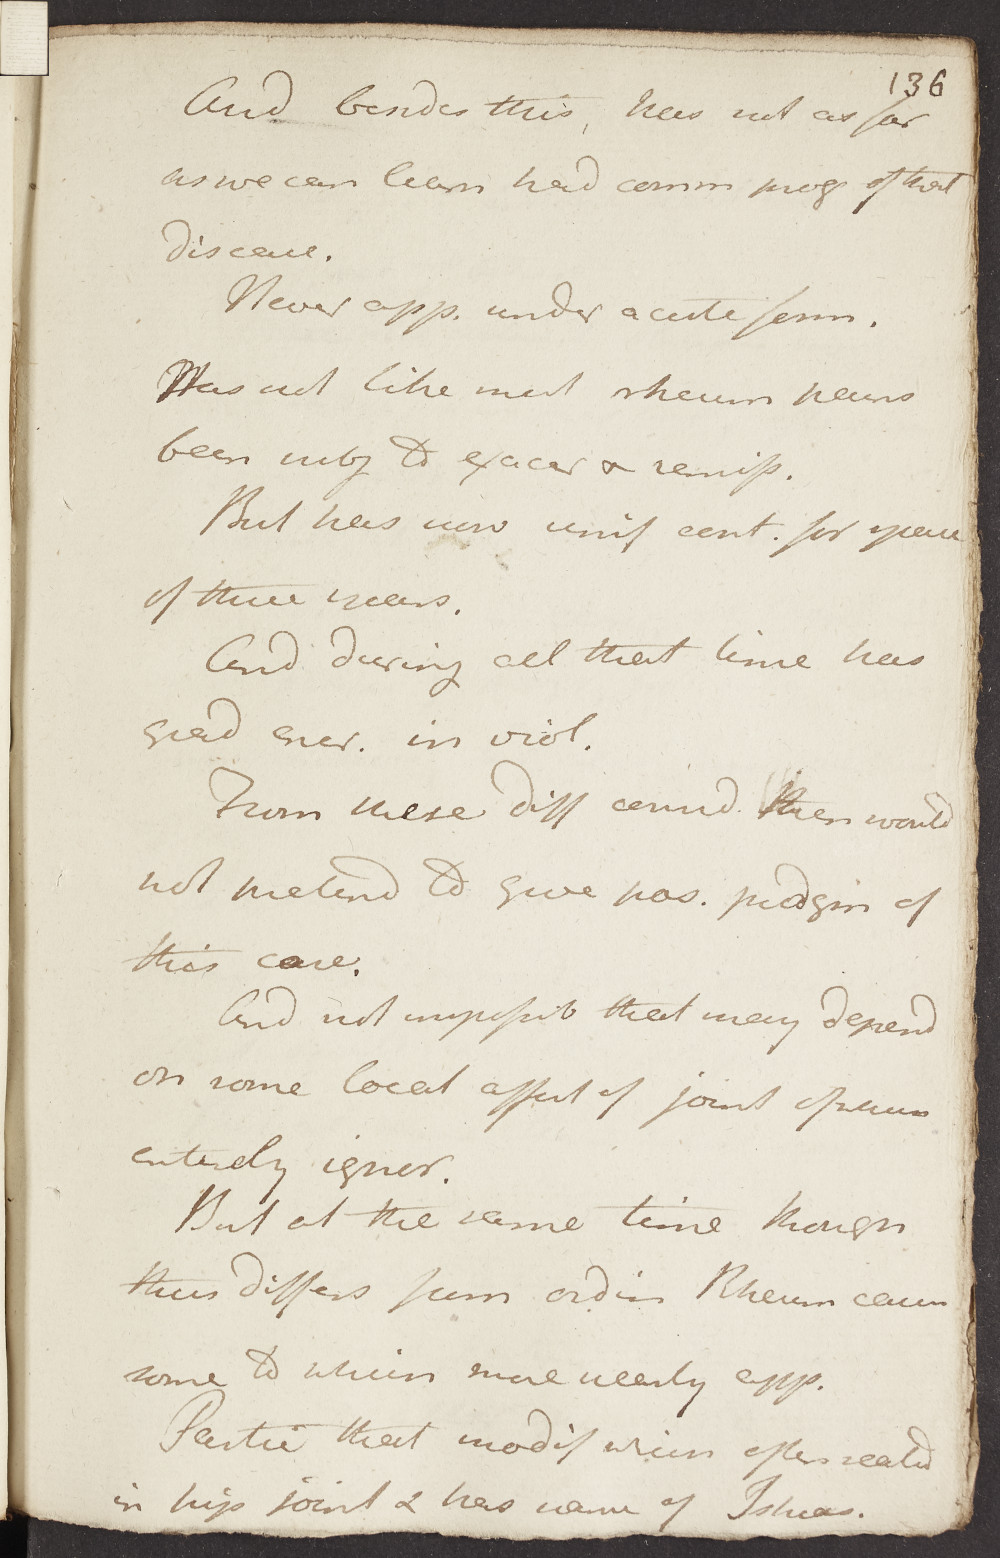 136
And besides this, has not as far
as we can learn had comm prog of that
disease.
Never app. under acute form.
Has not like most rheum pains
been subj to exacer & remiss.
But has now unif cont. for space
of three years.
And during all that time has
grad incr. in viol.
From these diff circumd then would
not pretend to give pos. prognn of
this case.
And not impossib that may depend
on some local affect of joint of which
entirely ignor.
But at the same time though
thus differs from ordin Rheum
some to which more nearly app.
Partic that modif which often seated
in hip joint & has name of Ishias.